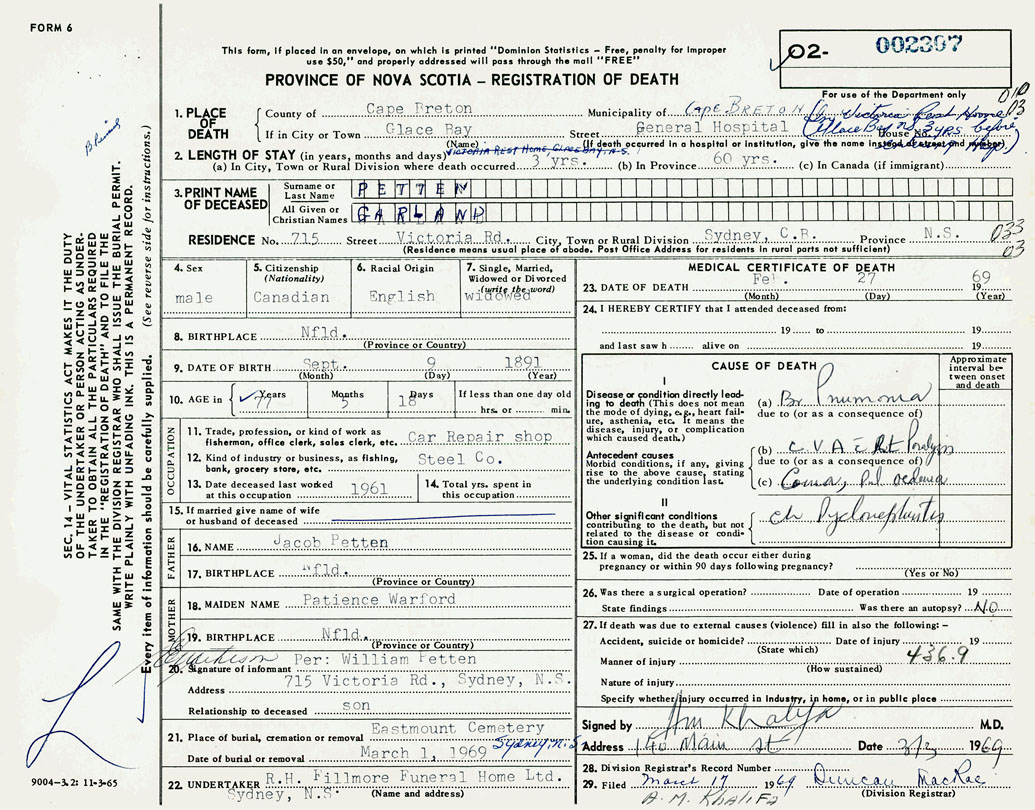 FORM 6
This form, if placed in an envelope, on which is printed "Dominion Statistics – Free, penalty for improper
use $50," and properly addressed will pass through the mail "FREE"
PROVINCE OF NOVA SCOTIA – REGISTRATION OF DEATH
O2- 002307
For use of the Department only
010
03
1. PLACE OF DEATH
County of Cape Breton Municipality of CAPE BRETON
If in City or Town Glace Bay Street General Hospital House No.
(Name) (If death occurred in a hospital or institution, give the name instead of street and number)
(Glace Bay N.S. 3 yrs. before
2. LENGTH OF STAY (in years, months and days) VICTORIA REST HOME, GLACE BAY, N.S.
(a) In City, Town or Rural Division where death occurred 3 yrs. (b) In Province 60 yrs. (c) In Canada (if immigrant)
3. PRINT NAME OF DECEASED
Surname or Last Name PETTEN
All Given or Christian Names GARLAND
RESIDENCE No. 715 Street Victoria Rd. City, Town or Rural Division Sydney, C.B. Province N.S.
(Residence means usual place of abode. Post Office Address for residents in rural parts not sufficient)
033
03
4. Sex
male
5. Citizenship
(Nationality)
Canadian
6. Racial Origin
English
7. Single, Married,
Widowed or Divorced
(write the word)
widowed
8. BIRTHPLACE Nfld.
(Province or Country)
9. DATE OF BIRTH Sept. 9 1891
(Month) (Day) (Year)
10. AGE in Years Months Days If less than one day old
77 5 18 hrs. or min.
OCCUPATION
11. Trade, profession, or kind of work as
fisherman, office clerk, sales clerk, etc. Car Repair shop
12. Kind of industry or business, as fishing,
bank, grocery store, etc. Steel Co.
13. Date deceased last worked
at this occupation 1961
14. Total yrs. spent in
this occupation
15. If married give name of wife
or husband of deceased
FATHER
16. NAME Jacob Petten
17. BIRTHPLACE Nfld.
(Province or Country)
MOTHER
18. MAIDEN NAME Patience Warford
19. BIRTHPLACE Nfld.
(Province or Country)
20. Signature of informant Per: William Petten
Address 715 Victoria Rd., Sydney, N.S.
Relationship to deceased son
21. Place of burial, cremation or removal Eastmount Cemetery
Sydney, N.S.
Date of burial or removal March 1, 1969
22. UNDERTAKER R.H. Fillmore Funeral Home Ltd.
Sydney, N.S. (Name and address)
MEDICAL CERTIFICATE OF DEATH
23. DATE OF DEATH Feb. 27 1969
(Month) (Day) (Year)
24. I HEREBY CERTIFY that I attended deceased from:
19 to 19
and last saw h alive on 19
CAUSE OF DEATH
Approximate
interval be-
tween onset
and death
I
Disease or condition directly lead-
ing to death (This does not mean
the mode of dying, e.g., heart fail-
ure, asthenia, etc. It means the
disease, injury, or complication
which caused death.)
(a) Br. Pnumonia
due to (or as a consequence of)
Antecedent causes
Morbid conditions, if any, giving
rise to the above cause, stating
the underlying condition last.
(b) C.V.A c̄ Rt Paralysis
due to (or as a consequence of)
(c) Coma, Pul oedema
II
Other significant conditions
contributing to the death, but not
related to the disease or condi-
tion causing it.
Ch Pyelonephritis
25. If a woman, did the death occur either during
pregnancy or within 90 days following pregnancy?
(Yes or No)
26. Was there a surgical operation? Date of operation 19
State findings Was there an autopsy? NO
27. If death was due to external causes (violence) fill in also the following: –
Accident, suicide or homicide? Date of injury 19
(State which)
436.9
Manner of injury
(How sustained)
Nature of injury
Specify whether injury occurred in industry, in home, or in public place
Signed by AM Khalifa M.D.
Address 140 Main St Date 3/3 1969
28. Division Registrar's Record Number
29. Filed March 17 1969 Duncan MacRae
A.M. KHALIFA (Division Registrar)
SEC. 14 – VITAL STATISTICS ACT MAKES IT THE DUTY
OF THE UNDERTAKER OR PERSON ACTING AS UNDER-
TAKER TO OBTAIN ALL THE PARTICULARS REQUIRED
IN THE "REGISTRATION OF DEATH" AND TO FILE THE
SAME WITH THE DIVISION REGISTRAR WHO SHALL ISSUE THE BURIAL PERMIT.
WRITE PLAINLY WITH UNFADING INK. THIS IS A PERMANENT RECORD.
Every item of information should be carefully supplied. (See reverse side for instructions.)
9004-3.2: 11-3-65